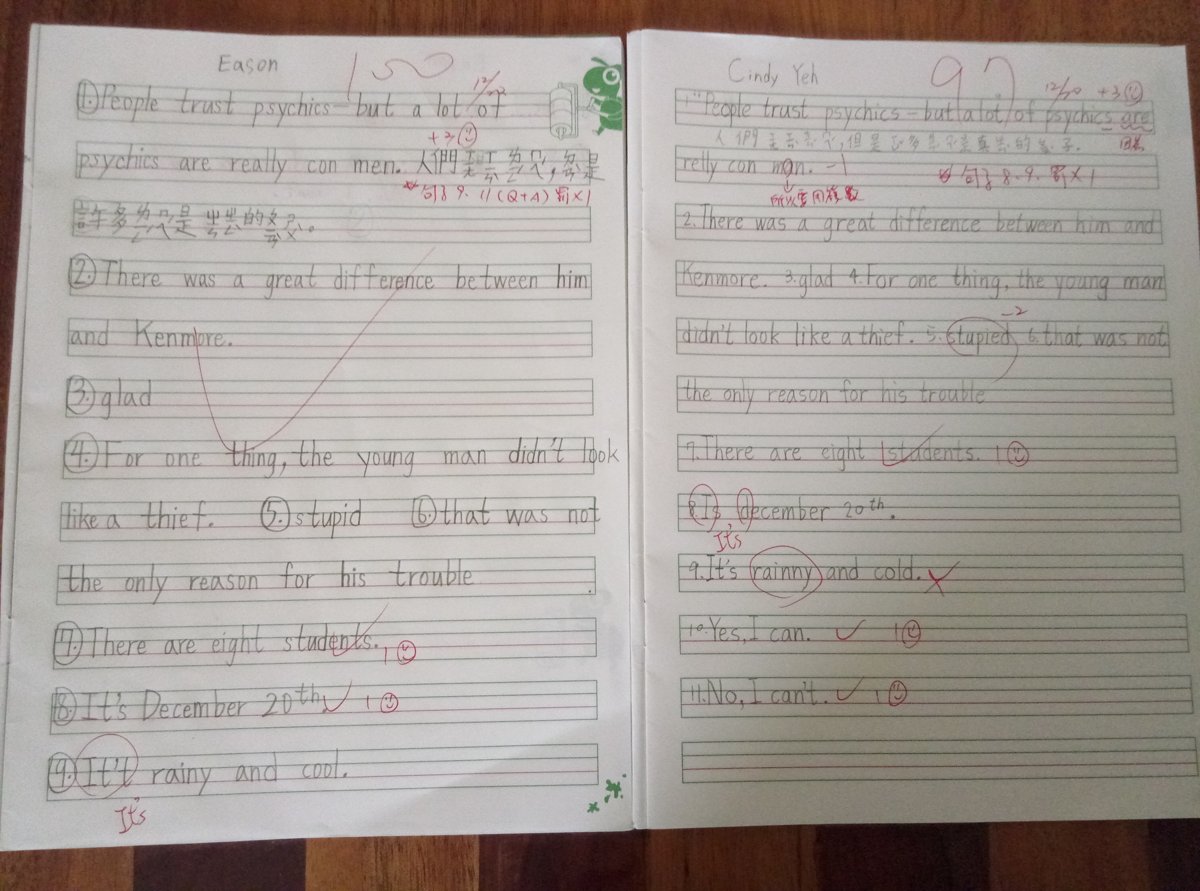 Eason
150
12/20
①People trust psychics — but a lot of
+3
psychics are really con men. 人們
句子 9、11 (Q+A) 罰×1
許多 是 的
②There was a great difference between him
and Kenmore.
③glad
④For one thing, the young man didn't look
like a thief. ⑤stupid ⑥that was not
the only reason for his trouble
⑦There are eight students. 1
⑧It's December 20th. 1
⑨It't rainy and cool.
It's
Cindy Yeh
97
12/20 +3
1."People trust psychics — but a lot of psychics are
relly con man. -1
句子 8、9、罰×1
所以要用複數
2.There was a great difference between him and
Kenmore. 3.glad 4.For one thing, the young man
-2
didn't look like a thief. 5.stupied 6.that was not
the only reason for his trouble
7.There are eight students. 1
8.Is, december 20th.
It's
9.It's rainny and cold.
10.Yes, I can. 1
11.No, I can't. 1